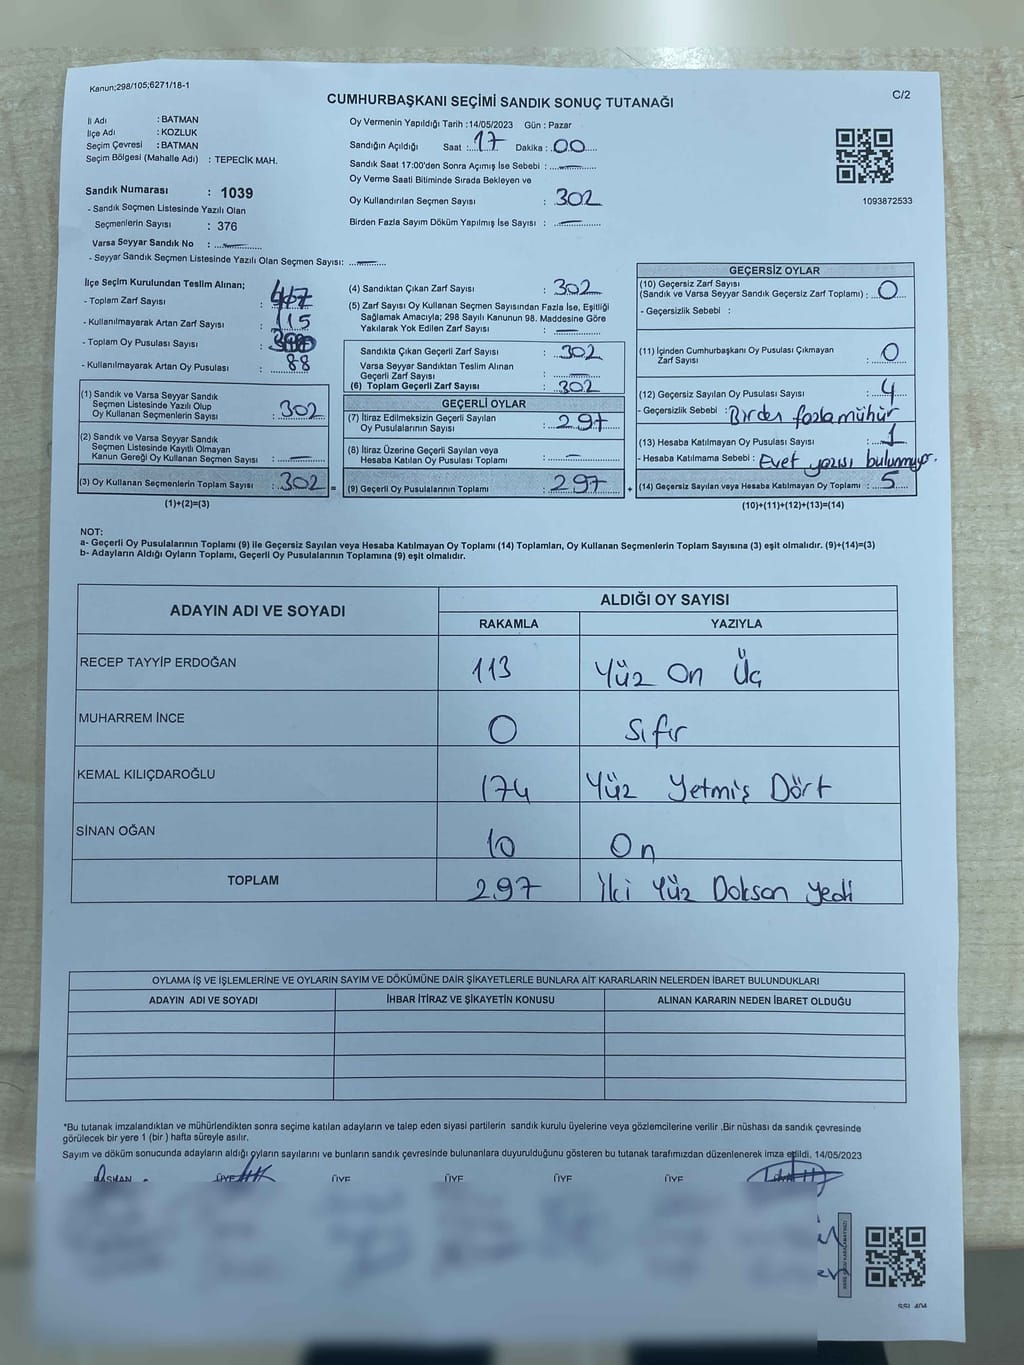 Kanun;298/105;6271/18-1
C/2
CUMHURBAŞKANI SEÇİMİ SANDIK SONUÇ TUTANAĞI
İl Adı : BATMAN
İlçe Adı : KOZLUK
Seçim Çevresi : BATMAN
Seçim Bölgesi (Mahalle Adı) : TEPECİK MAH.
Sandık Numarası : 1039
- Sandık Seçmen Listesinde Yazılı Olan
Seçmenlerin Sayısı : 376
Varsa Seyyar Sandık No :
- Seyyar Sandık Seçmen Listesinde Yazılı Olan Seçmen Sayısı:
Oy Vermenin Yapıldığı Tarih :14/05/2023 Gün : Pazar
Sandığın Açıldığı Saat : 17 Dakika : 00
Sandık Saat 17:00'den Sonra Açımış İse Sebebi :
Oy Verme Saati Bitiminde Sırada Bekleyen ve
Oy Kullandırılan Seçmen Sayısı : 302
Birden Fazla Sayım Döküm Yapılmış İse Sayısı :
1093872533
İlçe Seçim Kurulundan Teslim Alınan;
- Toplam Zarf Sayısı :
- Kullanılmayarak Artan Zarf Sayısı : 115
- Toplam Oy Pusulası Sayısı :
- Kullanılmayarak Artan Oy Pusulası : 88
(1) Sandık ve Varsa Seyyar Sandık
Seçmen Listesinde Yazılı Olup
Oy Kullanan Seçmenlerin Sayısı : 302
(2) Sandık ve Varsa Seyyar Sandık
Seçmen Listesinde Kayıtlı Olmayan
Kanun Gereği Oy Kullanan Seçmen Sayısı :
(3) Oy Kullanan Seçmenlerin Toplam Sayısı : 302 =
(1)+(2)=(3)
(4) Sandıktan Çıkan Zarf Sayısı : 302
(5) Zarf Sayısı Oy Kullanan Seçmen Sayısından Fazla İse, Eşitliği
Sağlamak Amacıyla; 298 Sayılı Kanunun 98. Maddesine Göre
Yakılarak Yok Edilen Zarf Sayısı :
Sandıkta Çıkan Geçerli Zarf Sayısı : 302
Varsa Seyyar Sandıktan Teslim Alınan
Geçerli Zarf Sayısı :
(6) Toplam Geçerli Zarf Sayısı : 302
GEÇERLİ OYLAR
(7) İtiraz Edilmeksizin Geçerli Sayılan
Oy Pusulalarının Sayısı : 297
(8) İtiraz Üzerine Geçerli Sayılan veya
Hesaba Katılan Oy Pusulası Toplamı :
(9) Geçerli Oy Pusulalarının Toplamı : 297 +
GEÇERSİZ OYLAR
(10) Geçersiz Zarf Sayısı
(Sandık ve Varsa Seyyar Sandık Geçersiz Zarf Toplamı) : 0
- Geçersizlik Sebebi :
(11) İçinden Cumhurbaşkanı Oy Pusulası Çıkmayan
Zarf Sayısı : 0
(12) Geçersiz Sayılan Oy Pusulası Sayısı : 4
- Geçersizlik Sebebi : Birden fazla mühür
(13) Hesaba Katılmayan Oy Pusulası Sayısı : 1
- Hesaba Katılmama Sebebi : Evet yazısı bulunmuyor.
(14) Geçersiz Sayılan veya Hesaba Katılmayan Oy Toplamı : 5
(10)+(11)+(12)+(13)=(14)
NOT:
a- Geçerli Oy Pusulalarının Toplamı (9) ile Geçersiz Sayılan veya Hesaba Katılmayan Oy Toplamı (14) Toplamları, Oy Kullanan Seçmenlerin Toplam Sayısına (3) eşit olmalıdır. (9)+(14)=(3)
b- Adayların Aldığı Oyların Toplamı, Geçerli Oy Pusulalarının Toplamına (9) eşit olmalıdır.
ADAYIN ADI VE SOYADI ALDIĞI OY SAYISI
RAKAMLA YAZIYLA
RECEP TAYYİP ERDOĞAN 113 Yüz On Üç
MUHARREM İNCE 0 Sıfır
KEMAL KILIÇDAROĞLU 174 Yüz Yetmiş Dört
SİNAN OĞAN 10 On
TOPLAM 297 İki Yüz Doksan Yedi
OYLAMA İŞ VE İŞLEMLERİNE VE OYLARIN SAYIM VE DÖKÜMÜNE DAİR ŞİKAYETLERLE BUNLARA AİT KARARLARIN NELERDEN İBARET BULUNDUKLARI
ADAYIN ADI VE SOYADI İHBAR İTİRAZ VE ŞİKAYETİN KONUSU ALINAN KARARIN NEDEN İBARET OLDUĞU
*Bu tutanak imzalandıktan ve mühürlendikten sonra seçime katılan adayların ve talep eden siyasi partilerin sandık kurulu üyelerine veya gözlemcilerine verilir .Bir nüshası da sandık çevresinde
görülecek bir yere 1 (bir ) hafta süreyle asılır.
Sayım ve döküm sonucunda adayların aldığı oyların sayılarını ve bunların sandık çevresinde bulunanlara duyurulduğunu gösteren bu tutanak tarafımızdan düzenlenerek imza edildi. 14/05/2023
BAŞKAN ÜYE ÜYE ÜYE ÜYE ÜYE